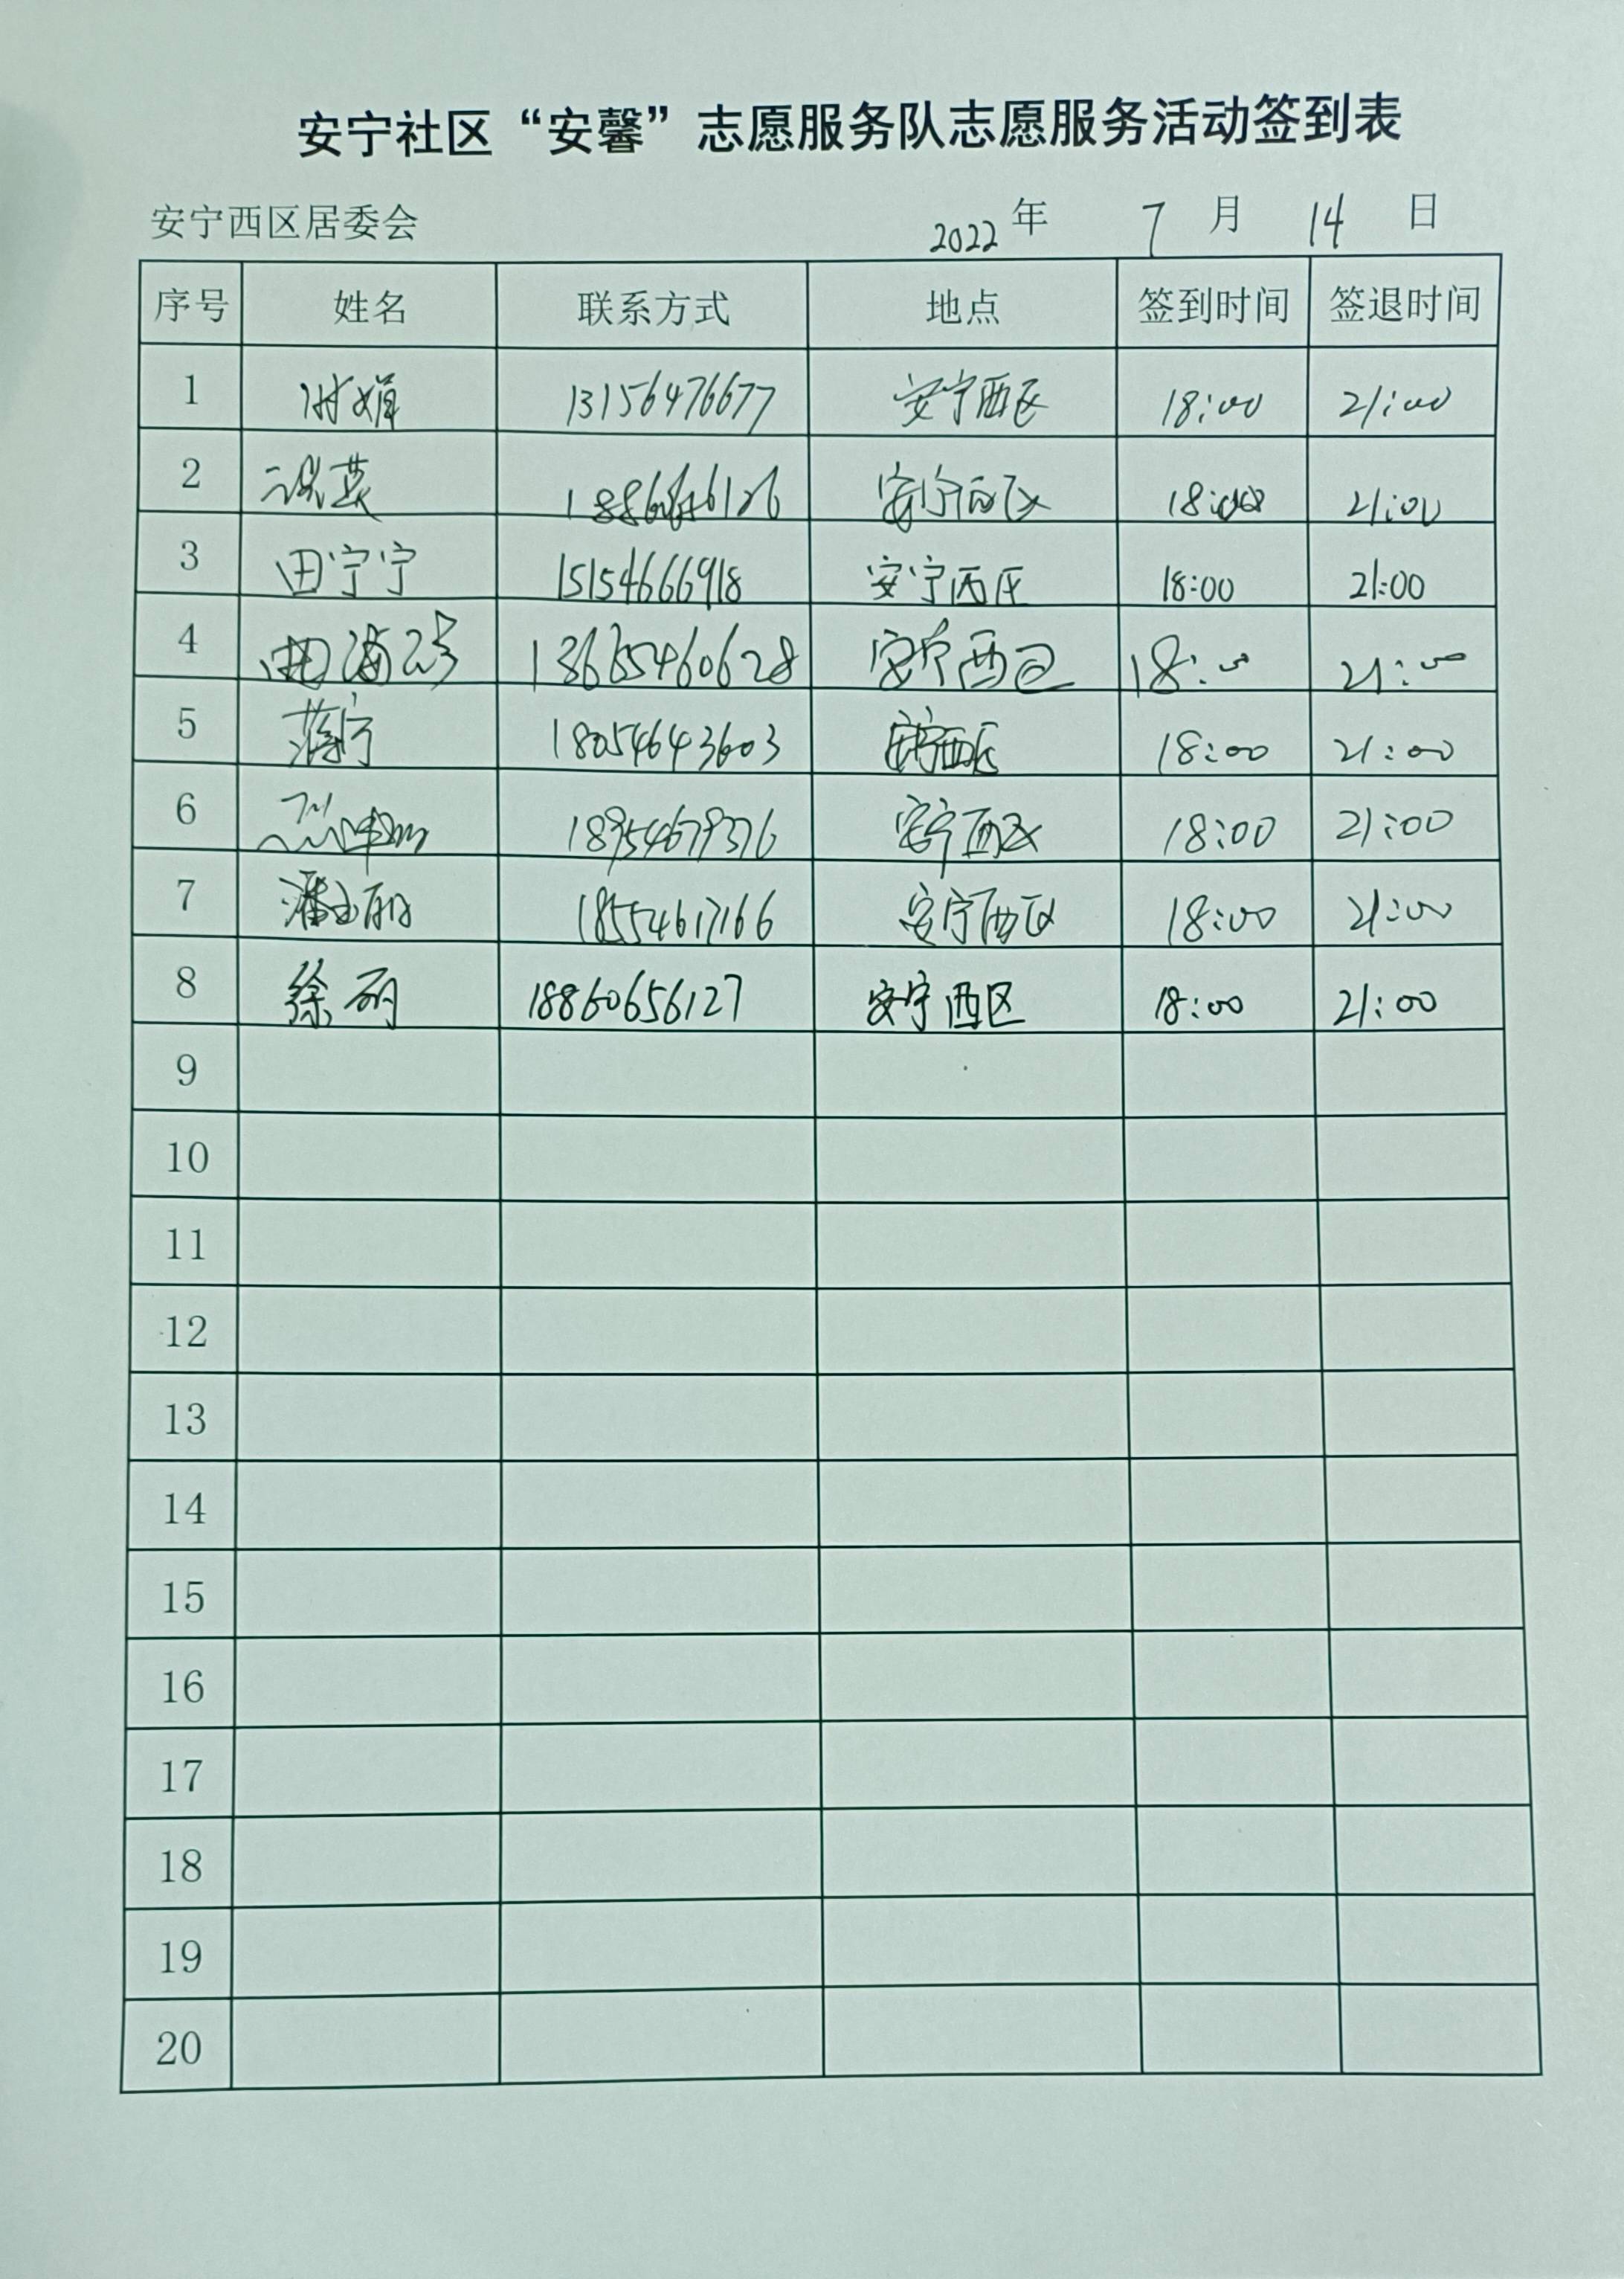 安宁社区“安馨”志愿服务队志愿服务活动签到表
安宁西区居委会 2022 年 7 月 14 日
序号 姓名 联系方式 地点 签到时间 签退时间
1 谢娟 13156476677 安宁西区 18:00 21:00
2 安宁西区 18:00 21:00
3 田宁宁 15154666918 安宁西区 18:00 21:00
4 13665460628 安宁西区 18:00 21:00
5 蒋宁 18054643603 安宁西区 18:00 21:00
6 18954679376 安宁西区 18:00 21:00
7 18554617166 安宁西区 18:00 21:00
8 徐丽 18860656127 安宁西区 18:00 21:00
9
10
11
12
13
14
15
16
17
18
19
20